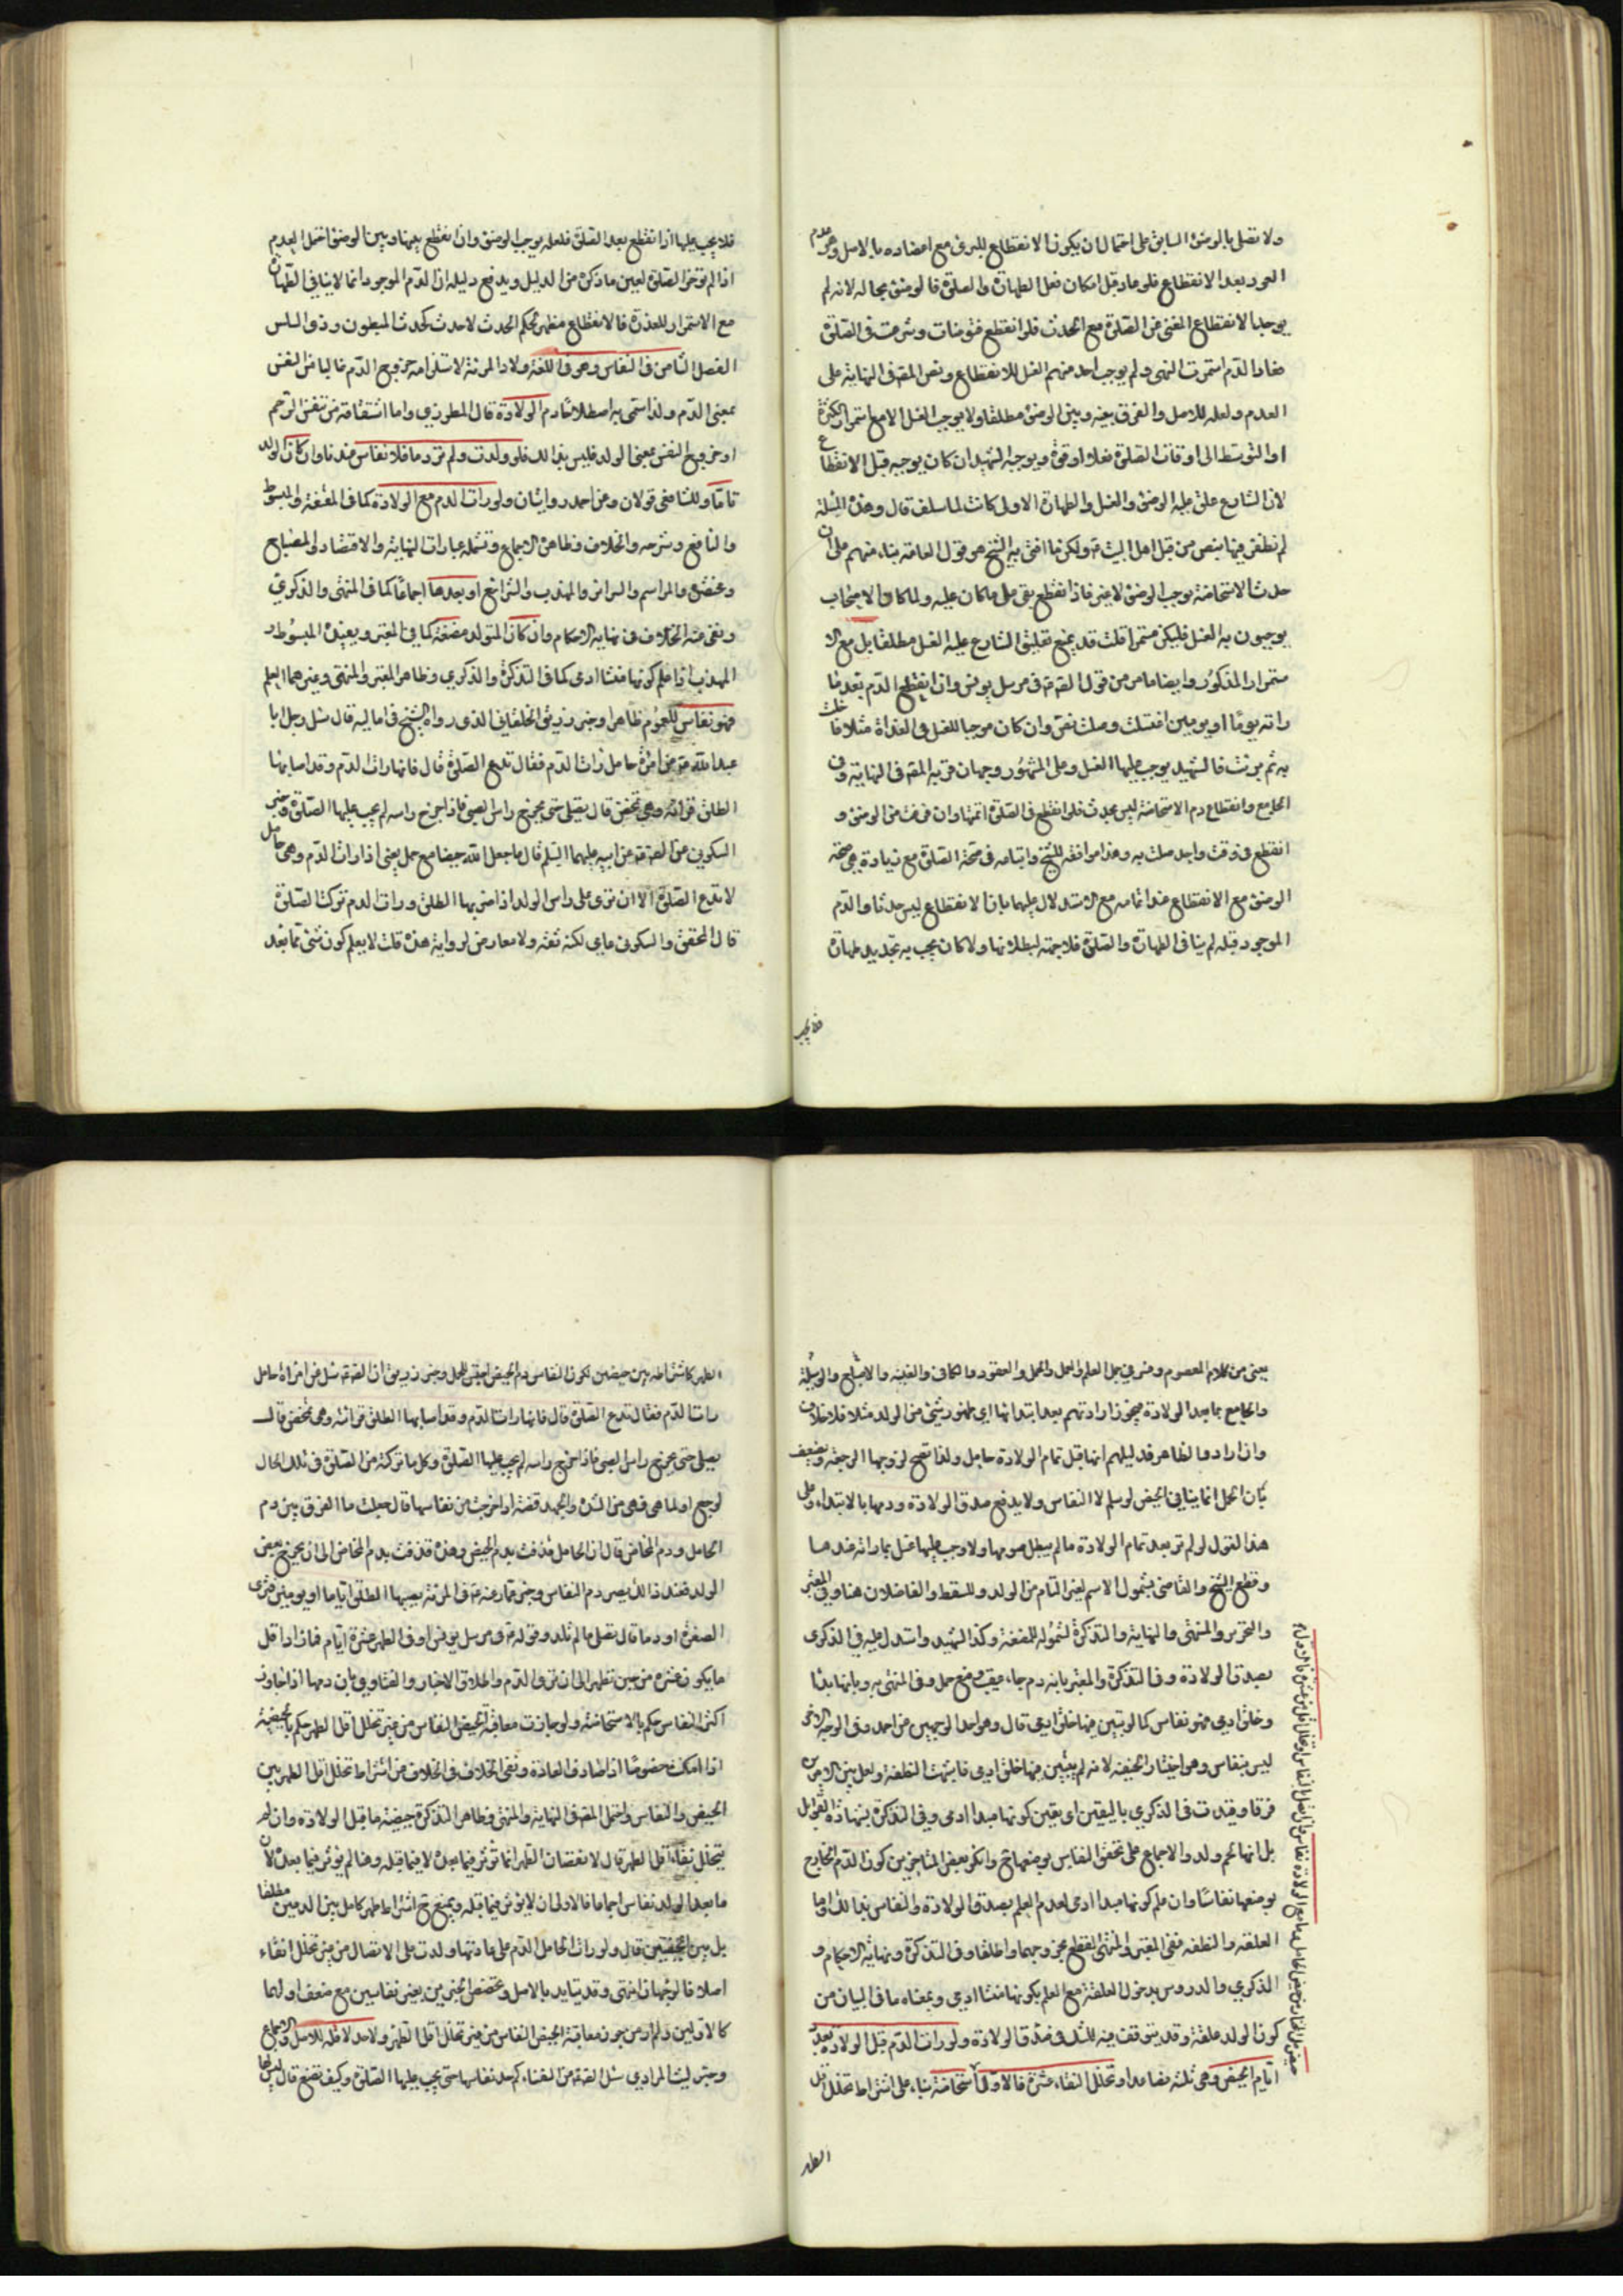 ولا تصلي بالوضوء السابق على احتمال ان يكون الانقطاع للبرء مع اعتضاده بالاصل وهو عدم
العود بعد الانقطاع فلو عاد قبل امكان فعل الطهارة والصلوة فالوضوء بحاله لانه لم
يوجد الانقطاع المغني عن الصلوة مع الحدث فلو انقطع فتوضأت وشرعت في الصلوة
فعاد الدم استمرت انتهى ولم يوجب احد منهم الغسل للانقطاع ونص المصنف في النهاية على
العدم ولعله للاصل والفرق بينه وبين الوضوء مطلقا ولا يوجب الغسل الا مع استمرار الكثرة
او التوسط الى اوقات الصلوة فعلا او قوة ويوجبه الشهيد ان كان يوجبه قبل الانقطاع
لان الشارع علق عليه الوضوء والغسل والطهارة الاولى كانت لما سلف قال وهذه المسئلة
لم نظفر فيها بنص من قبل اهل البيت ع ولكن ما افتى به الشيخ هو قول العامة بناء منهم على ان
حدث الاستحاضة يوجب الوضوء لا غير فاذا انقطع بقي على ما كان عليه ولما كان الاصحاب
يوجبون به الغسل فليكن مستمرا قلت قد يمنع تعليق الشارع عليه الغسل مطلقا بل مع الا
ستمرار المذكور وايضا ما مر من قول الصادق ع في مرسل يونس وان انقطع الدم بعد ما
راته يوما او يومين اغتسلت وصلت نص وان كان موجبا للغسل في الغداة مثلا فاغتسلت
به ثم برئت فالشهيد يوجب عليها الغسل وعلى المشهور وجهان قربه المصنف في النهاية وفي
الجامع وانقطاع دم الاستحاضة ليس بحدث فلو انقطع في الصلوة اتمتها وان فرغت من الوضوء و
انقطع في وقت واحد صلت به وهذا موافقة للشيخ واتباعه في صحة الصلوة مع زيادة هي صحة
الوضوء مع الانقطاع عند اتمامه مع الاستدلال عليهما بان الانقطاع ليس حدثا والدم
الموجود قبله لم يناف الطهارة والصلوة فلا جهة لبطلانها ولا كان يجب به تجديد طهارة
فلا يجب
فلا يجب عليها اذا انقطع بعد الصلوة فلعله يوجب الوضوء وان انقطع بينها وبين الوضوء احتمل العدم
اذا لم تؤخر الصلوة لعين ما ذكره من الدليل ويدفع دليله ان الدم الموجود انما لا ينافي الطهارة
مع الاستمرار للعذر فالانقطاع مظهر لحكم الحدث لا حدث كحدث المبطون وذو السلس
الفصل الثامن في النفاس وهو في اللغة ولاد المرئة لاستلزامه خروج الدم غالبا من النفس
بمعنى الدم ولذا سمي به اصطلاحا دم الولادة قال المطرزي واما اشتقاقه من تنفس الرحم
او خروج النفس بمعنى الولد فليس بذاك فلو ولدت ولم تر دما فلا نفاس عندنا وان كان الولد
تاما وللشافعي قولان وعن احمد روايتان ولو رات الدم مع الولادة كما في المقنعة والمبسوط
والنافع وشرحه والخلاف وظاهره الاجماع وتشمله عبارات النهاية والاقتصاد والمصباح
ومختصره والمراسم والسرائر والمهذب والشرائع او بعدها اجماعا كما في المنتهى والذكرى
ونفى عنه الخلاف في نهاية الاحكام وان كان المتولد مضغة كما في المعتبر ويفيده المبسوط و
المهذب اذا علم كونها منشا ادمي كما في التذكرة والذكرى وظاهر المعتبر والمنتهى وغيرهما العلم
فهو نفاس للعموم ظاهرا وخبر زريق الخلقاني الذي رواه الشيخ في اماليه قال سئل رجل ابا
عبد الله ع عن امرئة حامل رات الدم فقال تدع الصلوة قال فانها رات الدم وقد اصابها
الطلق فراته وهي تمخض قال تصلي حتى يخرج راس الصبي فاذا خرج راسه لم يجب عليها الصلوة وخبر
السكوني عن الصادق عن ابيه عليهما السلم قال ما جعل الله حيضا مع حبل يعني اذا رات الدم وهي حامل
لا تدع الصلوة الا ان ترى على راس الولد اذا ضربها الطلق ورات الدم تركت الصلوة
قال المحقق والسكوني عامي لكنه ثقة ولا معارض لروايته هذه قلت لا يعلم كون شيء مما بعد
يعني من كلام المعصوم وخبر في جمل العلم والعمل والجمل والعقود والكافي والغنية والاصباح والوسيلة
والجامع بما بعد الولادة فيجوز ارادتهم بعد ابتدائها اي ظهور شيء من الولد مثلا فلا خلاف
وان ارادوا الظاهر فدليلهم انها قبل تمام الولادة حامل ولذا تصح لزوجها الرجعة ويضعف
بان الحمل انما ينافي الحيض لو سلم لا النفاس ولا يدفع صدق الولادة ودمها بالابتداء وعلى
هذا القول لو لم تر بعد تمام الولادة ما لم يبطل صومها ولا وجب عليها غسل بما راته عندها
وقطع الشيخ والقاضي بشمول الاسم لغير التام من الولد وللسقط والفاضلان هنا وفي المعتبر
والتحرير والمنتهى والنهاية والتذكرة لشموله للمضغة وكذا الشهيد واستدل عليه في الذكرى
بصدق الولادة وفي التذكرة والمعتبر بانه دم جاء عقيب وضع حمل وفي المنتهى به وبانها بدأ
وخلق ادمي فهو نفاس كما لو تبين فيها خلق ادمي قال وهو احد الوجهين عن احمد وفي الوجه الاخر
ليس بنفاس وهو اختيار ابي حنيفة لانه لم يتبين فيها خلق ادمي فاشبهت النطفة ولعل بين الامرين
فرقا وقيدت في الذكرى باليقين اي بيقين كونها مبدأ ادمي وفي التذكرة بشهادة القوابل
بل انها لحم ولد والاجماع على تحقق النفاس بوضعها ح وانكر بعض المتاخرين كون الدم الخارج
بوضعها نفاسا وان علم كونها مبدأ ادمي لعدم العلم بصدق الولادة والنفاس بذلك واما
العلقة والنطفة ففي المعتبر والمنتهى القطع بخروجهما واطلقا وفي التذكرة ونهاية الاحكام و
الذكرى والدروس بدخول العلقة مع العلم بكونها منشا ادمي وبمعناه ما في البيان من
كون الولد علقة وقد يتوقف فيه للشك في صدق الولادة ولو رات الدم قبل الولادة بعدد
ايام الحيض وهي ثلثة فصاعدا وتخلل النقاء عشرة فالاول استحاضة بناء على اشتراط تخلل اقل
الطهر
الطهر كاشتراطه بين حيضين لكون النفاس دم الحيض احتبس للحمل وخبر زريق ان الصادق ع سئل عن امراة حامل
رات الدم فقال تدع الصلوة قال فانها رات الدم وقد اصابها الطلق فراته وهي تمخض قال
تصلي حتى يخرج راس الصبي فاذا خرج راسه لم يجب عليها الصلوة وكل ما تركته من الصلوة في تلك الحال
لوجع او لما هي فيه من الشدة والجهد قضته اذا خرجت من نفاسها قال جعلت ما الفرق بين دم
الحامل ودم المخاض قال ان الحامل قذفت بدم الحيض وهذه قذفت بدم المخاض الى ان يخرج بعض
الولد فعند ذلك يصير دم النفاس وخبر عمار عنه ع في المرئة يصيبها الطلق اياما او يومين فترى
الصفرة او دما قال تصلي ما لم تلد وقوله ع في مرسل يونس ادنى الطهر عشرة ايام
ما يكون عشرة من حين تطهر الى ان ترى الدم واطلاق الاخبار والفتاوى بان دمها اذا جاوز
اكثر النفاس حكم بالاستحاضة ولو جازت معاقبة الحيض النفاس من غير تخلل اقل الطهر حكم بالحيضية
اذا امكنت خصوصا اذا صادف العادة ونفي الخلاف في الخلاف عن اشتراط تخلل اقل الطهر بين
الحيض والنفاس واحتمل المصنف في النهاية والمنتهى وظاهر التذكرة حيضية ما قبل الولادة وان لم
يتخلل نقاء اقل الطهر قال لا نقصان الطهر انما تؤثر فيما بعده لا فيما قبله وهنا لم يؤثر فيما بعده لان
ما بعد الولد نفاس اجماعا فالاولى ان لا يؤثر فيما قبله ويمنع ح اشتراط طهر كامل بين الدمين مطلقا
بل بين الحيضتين قال ولو رات الحامل الدم على عادتها وولدت على الاتصال من غير تخلل نقاء
اصلا فالوجهان انتهى وقد يتايد بالاصل وبخصوص الخبرين يعني نفاسين مع ضعف اولهما
كالاولين ولم ار من جوز معاقبة الحيض النفاس من غير تخلل اقل الطهر ولا حد لاقله للاصل والاجماع
وخبر ليث المرادي سئل الصادق ع عن النفساء كم حد نفاسها حتى يجب عليها الصلوة وكيف تصنع قال ليس لها